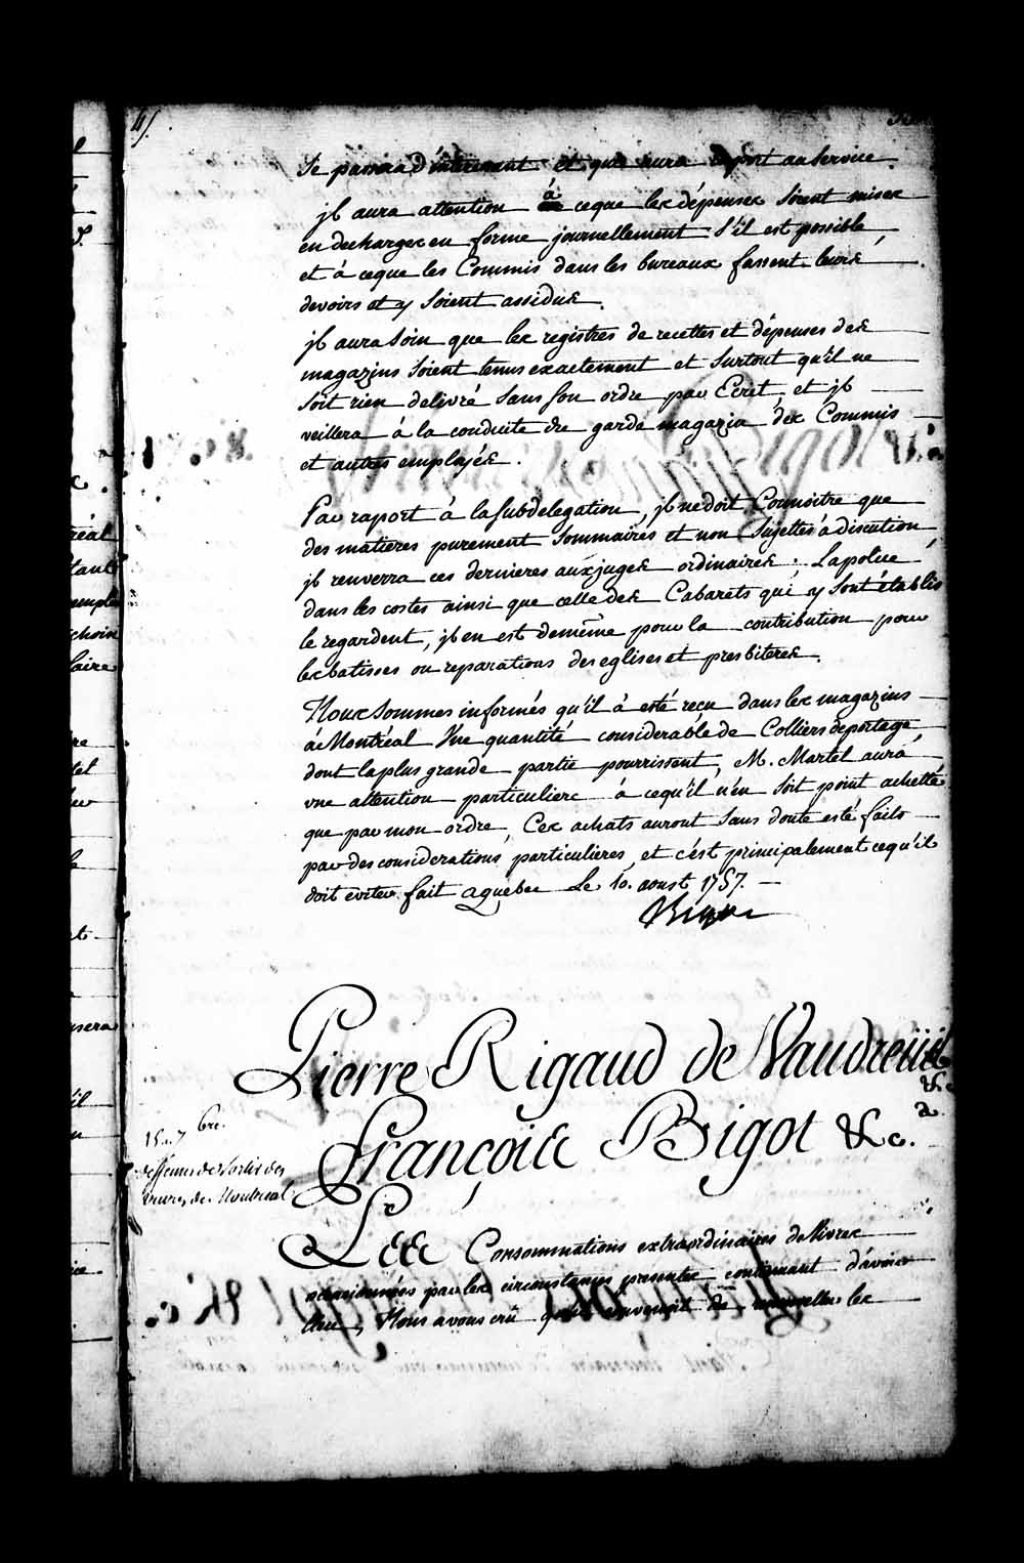 Se passera d'interessant et qui aura raport au Service
jl aura attention à ceque lex dépensex Soient misex
en dechargex en forme journellement S'il est possible
et à ceque les Commis dans les bureaux fassent leurs
devoirs et y Soient assidus.
jl aura Soin que lex registres de recettes et dépenses des
magazins Soient tenus exactement et Surtout qu'il ne
Soit rien delivré Sans Son ordre par Ecrit, et jl
veillera à la conduite du garde magazin des Commis
et autres employés.
Par raport à la Subdelegation, jl ne doit Connoitre que
des matieres purement Sommaires et non Sujettes à discution
jl renverra ces dernieres aux juges ordinaires. La police
dans les costes ainsi que celle des Cabarets qui y Sont établis
le regardent, jl en est de même pour la contribution pour
lex batisses ou reparations des eglises et presbiteres.
Nous Sommes informés qu'il à esté reçu dans lex magazins
à Montréal Une quantité considerable de Colliers de portage
dont la plus grande partie pourrissent, M. Martel aura
une attention particuliere à cequ'il n'en Soit point achetté
que par mon ordre, Cex achats auront Sans doute esté faits
par des considerations particulieres, et c'est principalement cequ'il
doit eviter fait a quebec Le 10. aoust 1757.
Bigot
Pierre Rigaud de Vaudreüil
&c.a
François Bigot &c.a
15. 7bre.
deffenses de Sortir des
vivres de Montreal
Les Consommations extraordinaires de Vivres
par lex circonstances presentes continuant d'avoir
lieu, Nous avons crû qu'il convenoit de lex